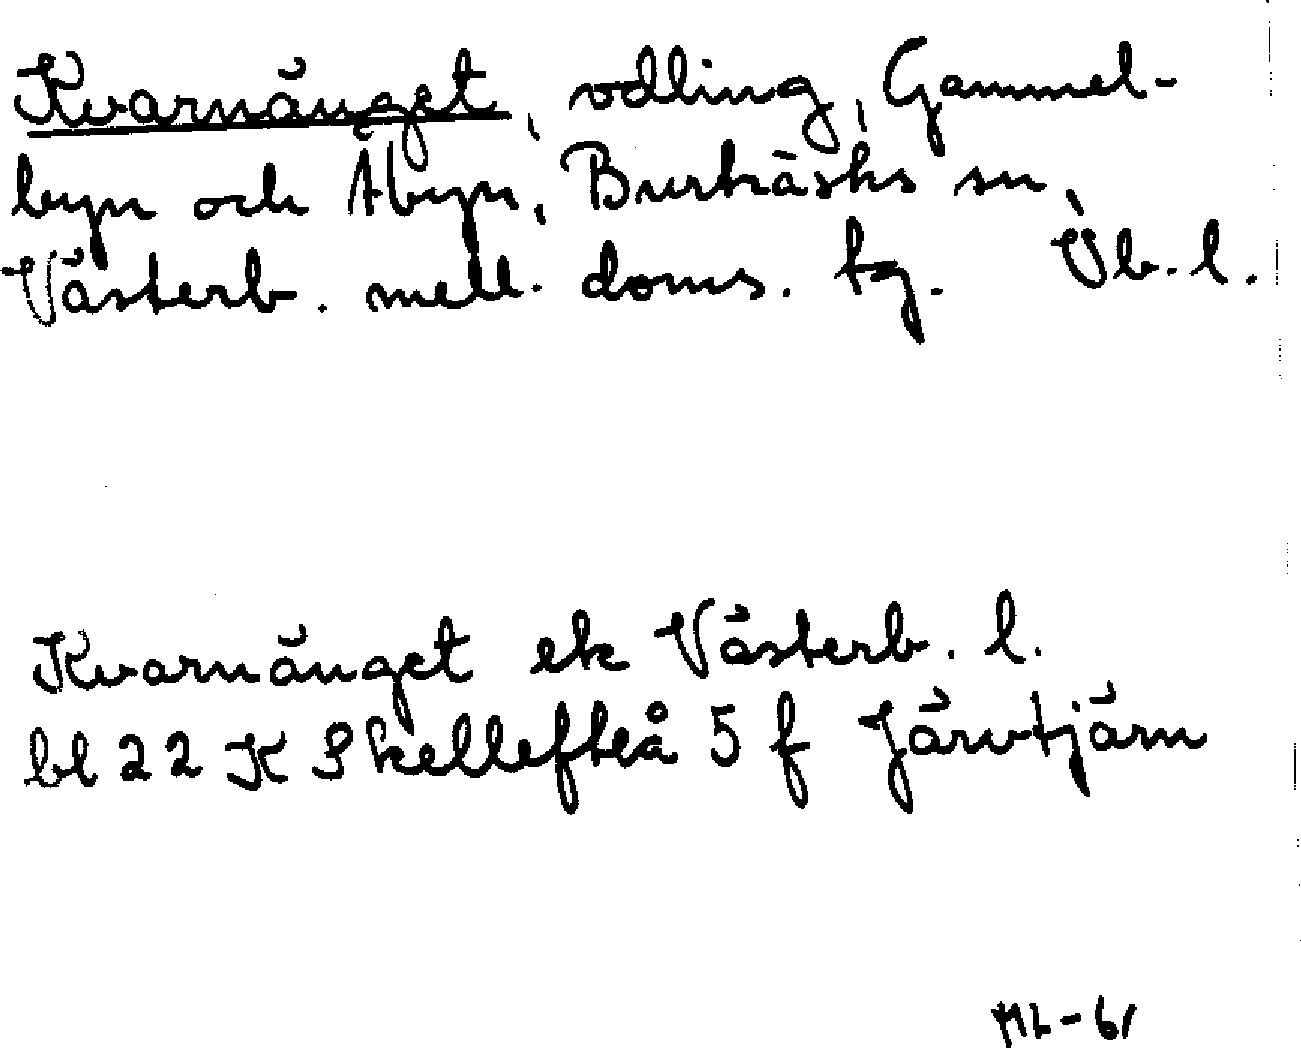 Kvarnänget, odling, Gammel-
byn och Åbyn, Burträsks sn,
Västerb. mell. doms. tg. Vb. l.
Kvarnänget ek Västerb. l.
bl 22 K Skellefteå 5 f Järvtjärn
ML-61